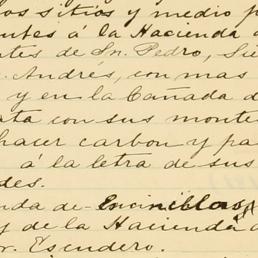 os sitios y medio p
ntes á la Hacienda d
tes de Sn. Pedro, Sie
Andrés, con mas
y en la Cañada d
ata con sus monte
hacer carbon y pa
á la letra de sus
des.
nda de Encinillas,
y de la Hacienda d
r. Escudero.